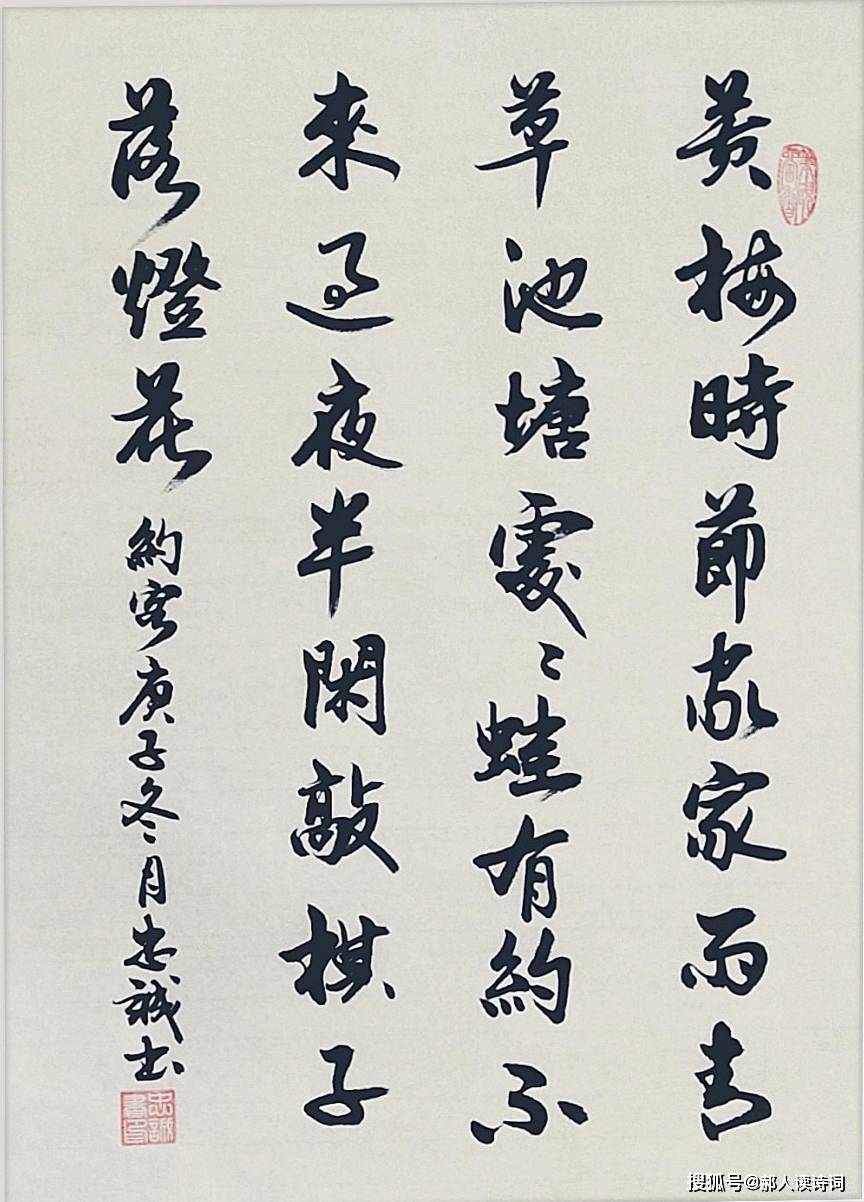 黄梅時節家家雨青
草池塘處〻蛙有約不
來過夜半閑敲棋子
落燈花 約客庚子冬月忠誠书
忠誠書印
搜狐号@郝人读诗词